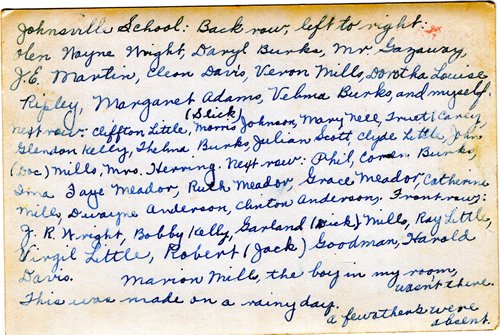 Johnsville School: Back row, left to right:
Olen Wayne Wright, Daryl Burks, Mr. Gazaway,
J.E. Martin, Cleon Davis, Veron Mills, Dortha Louise
Ripley, Margaret Adams, Velma Burks, and myself.
(Slick)
next row: Cliffton Little, Morris Johnson, Mary Nell, Truett Carley,
Glendon Kelly, Thelma Burks, Julian Scott, Clyde Little, John
(Doc) Mills, Mrs. Herring. Next row: Phil, Coren Burks,
Irma Faye Meador, Ruth Meador, Grace Meador, Catherine
Mills, Dwayne Anderson, Clinton Anderson. Front row:
J. R. Wright, Bobby Kelly, Garland (Mick) Mills, Ray Little,
Virgil Little, Robert (Jack) Goodman, Harold
Davis. Marion Mills, the boy in my room,
wasn't there.
This was made on a rainy day.
a few others were
absent.